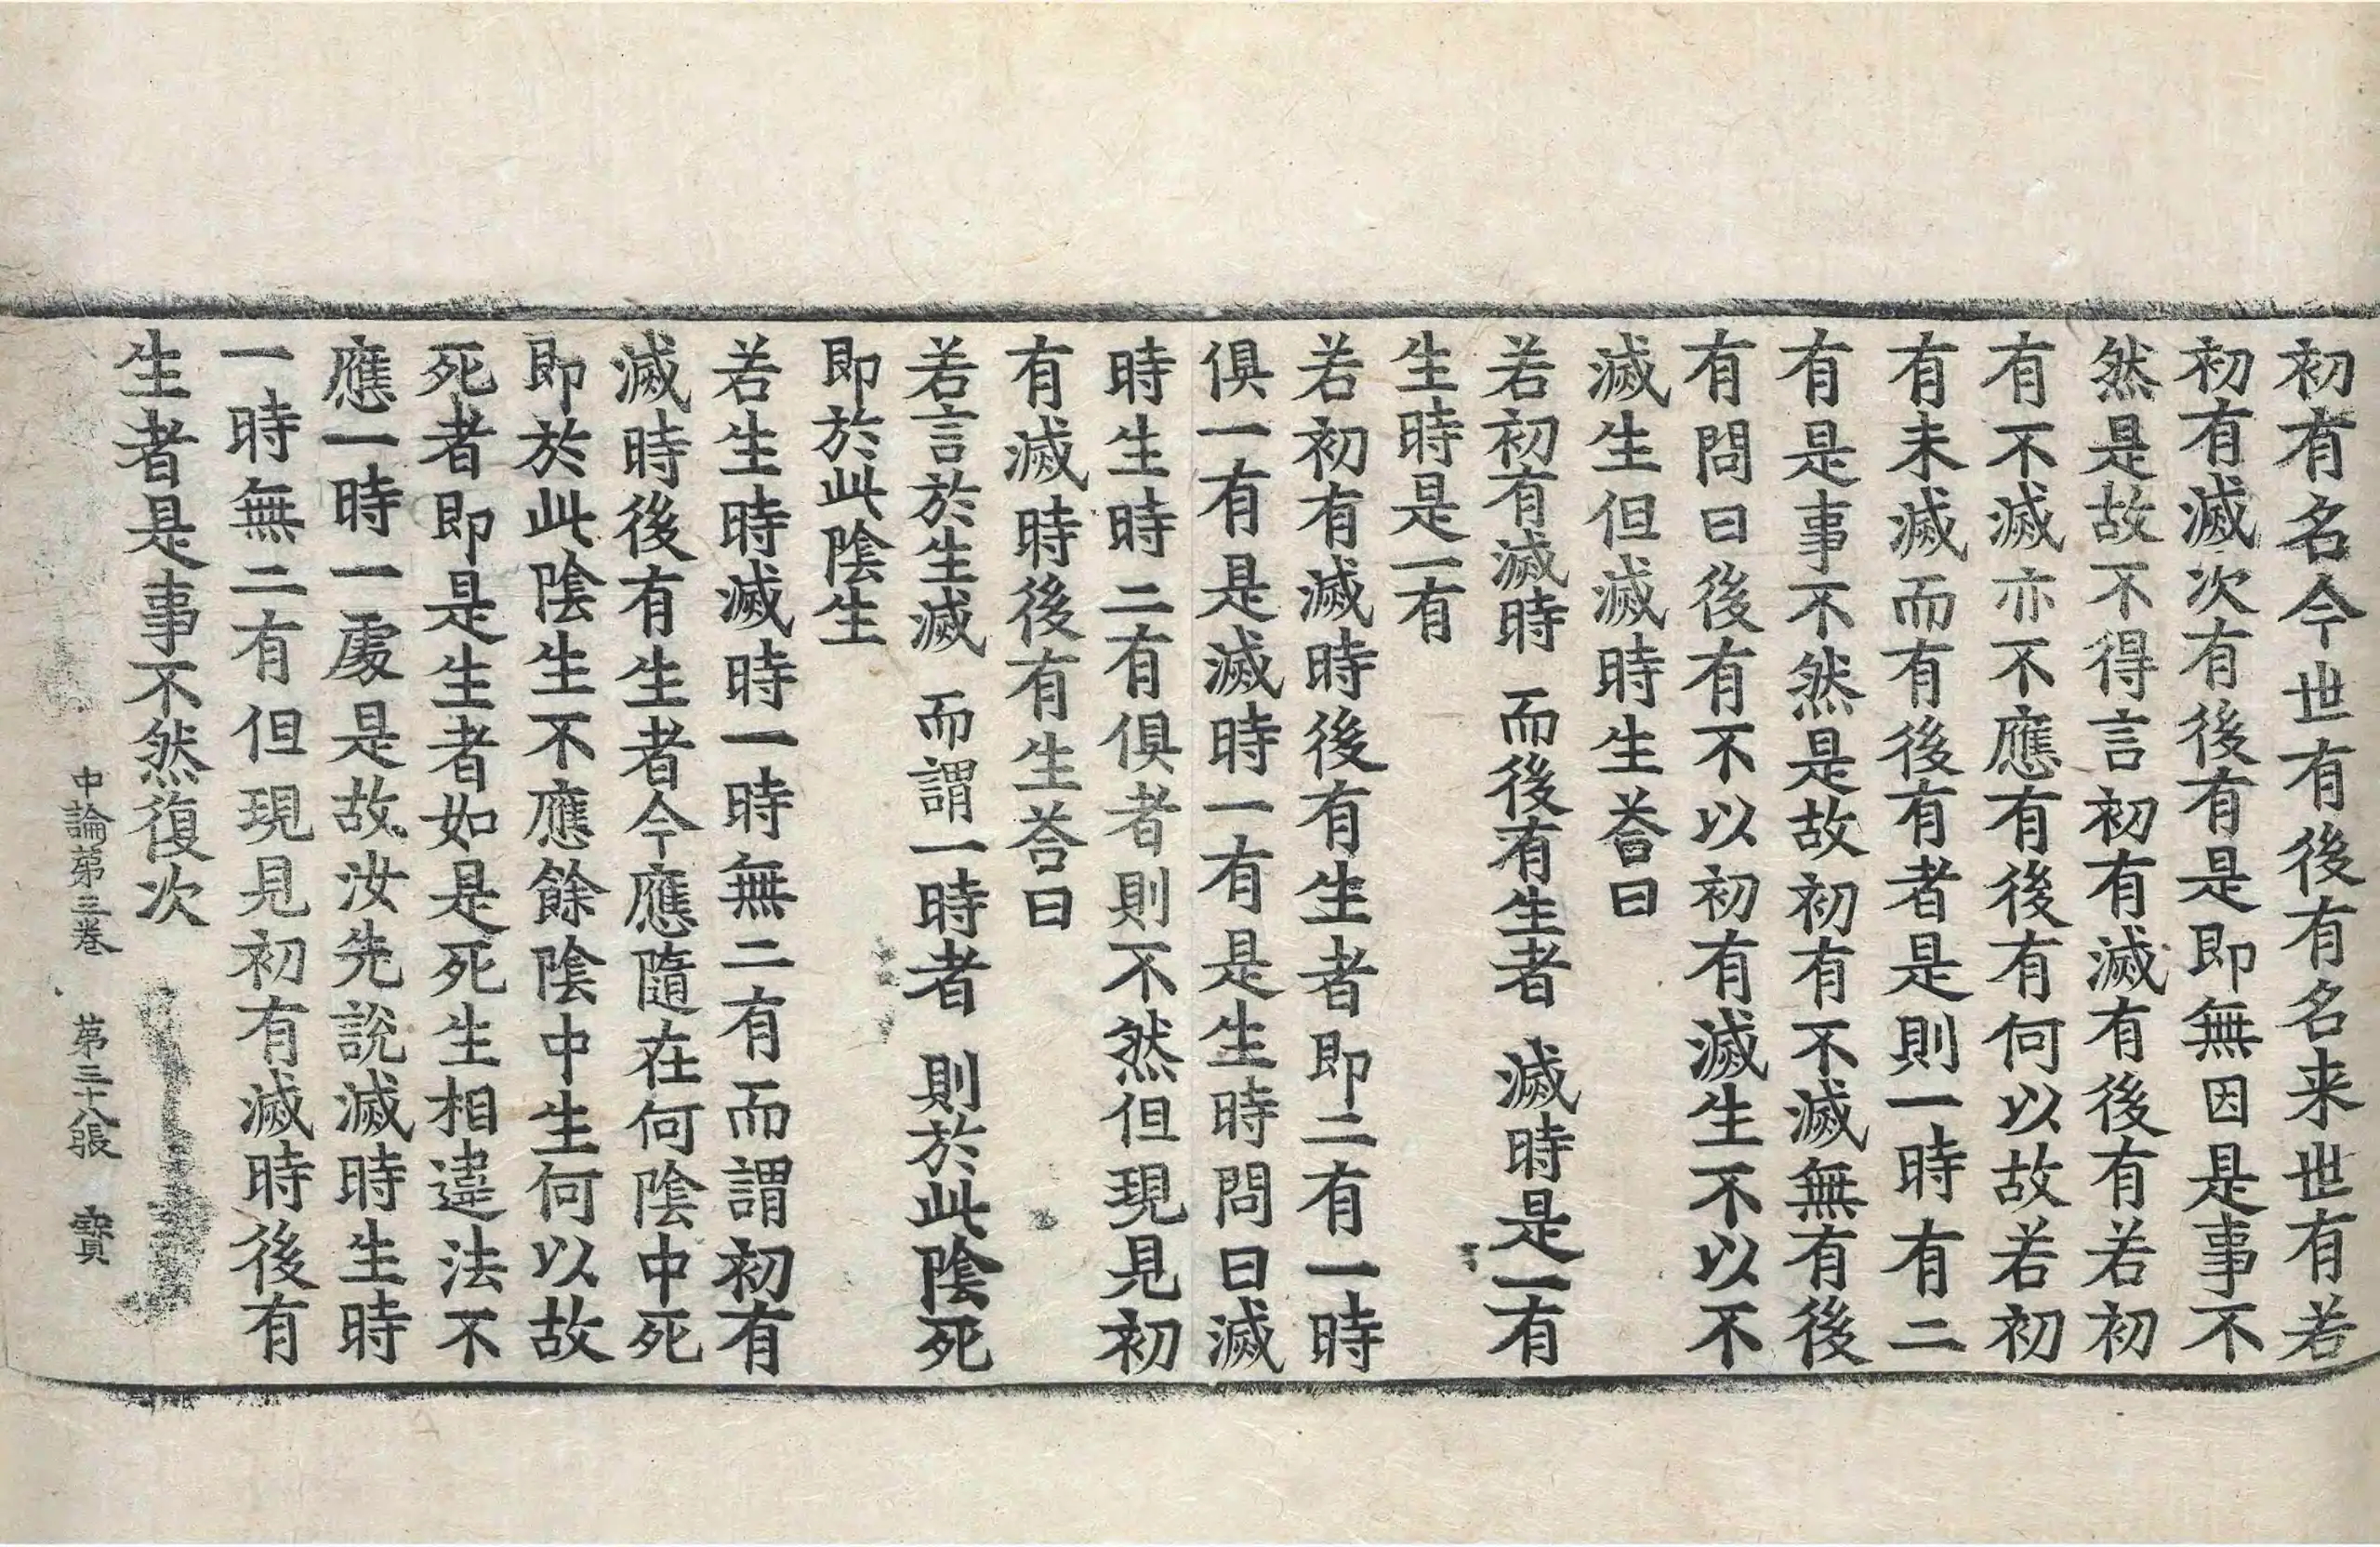 初有名今世有後有名来世有若
初有滅次有後有是即無因是事不
然是故不得言初有滅有後有若初
有不滅亦不應有後有何以故若初
有未滅而有後有者是則一時有二
有是事不然是故初有不滅無有後
有問曰後有不以初有滅生不以不
滅生但滅時生荅曰
若初有滅時　而後有生者　滅時是一有
生時是一有
若初有滅時後有生者即二有一時
俱一有是滅時一有是生時問曰滅
時生時二有俱者則不然但現見初
有滅時後有生荅曰
若言於生滅　而謂一時者　則於此陰死
即於此陰生
若生時滅時一時無二有而謂初有
滅時後有生者今應隨在何陰中死
即於此陰生不應餘陰中生何以故
死者即是生者如是死生相違法不
應一時一處是故汝先説滅時生時
一時無二有但現見初有滅時後有
生者是事不然復次
中論第三卷　第三十八張　寶